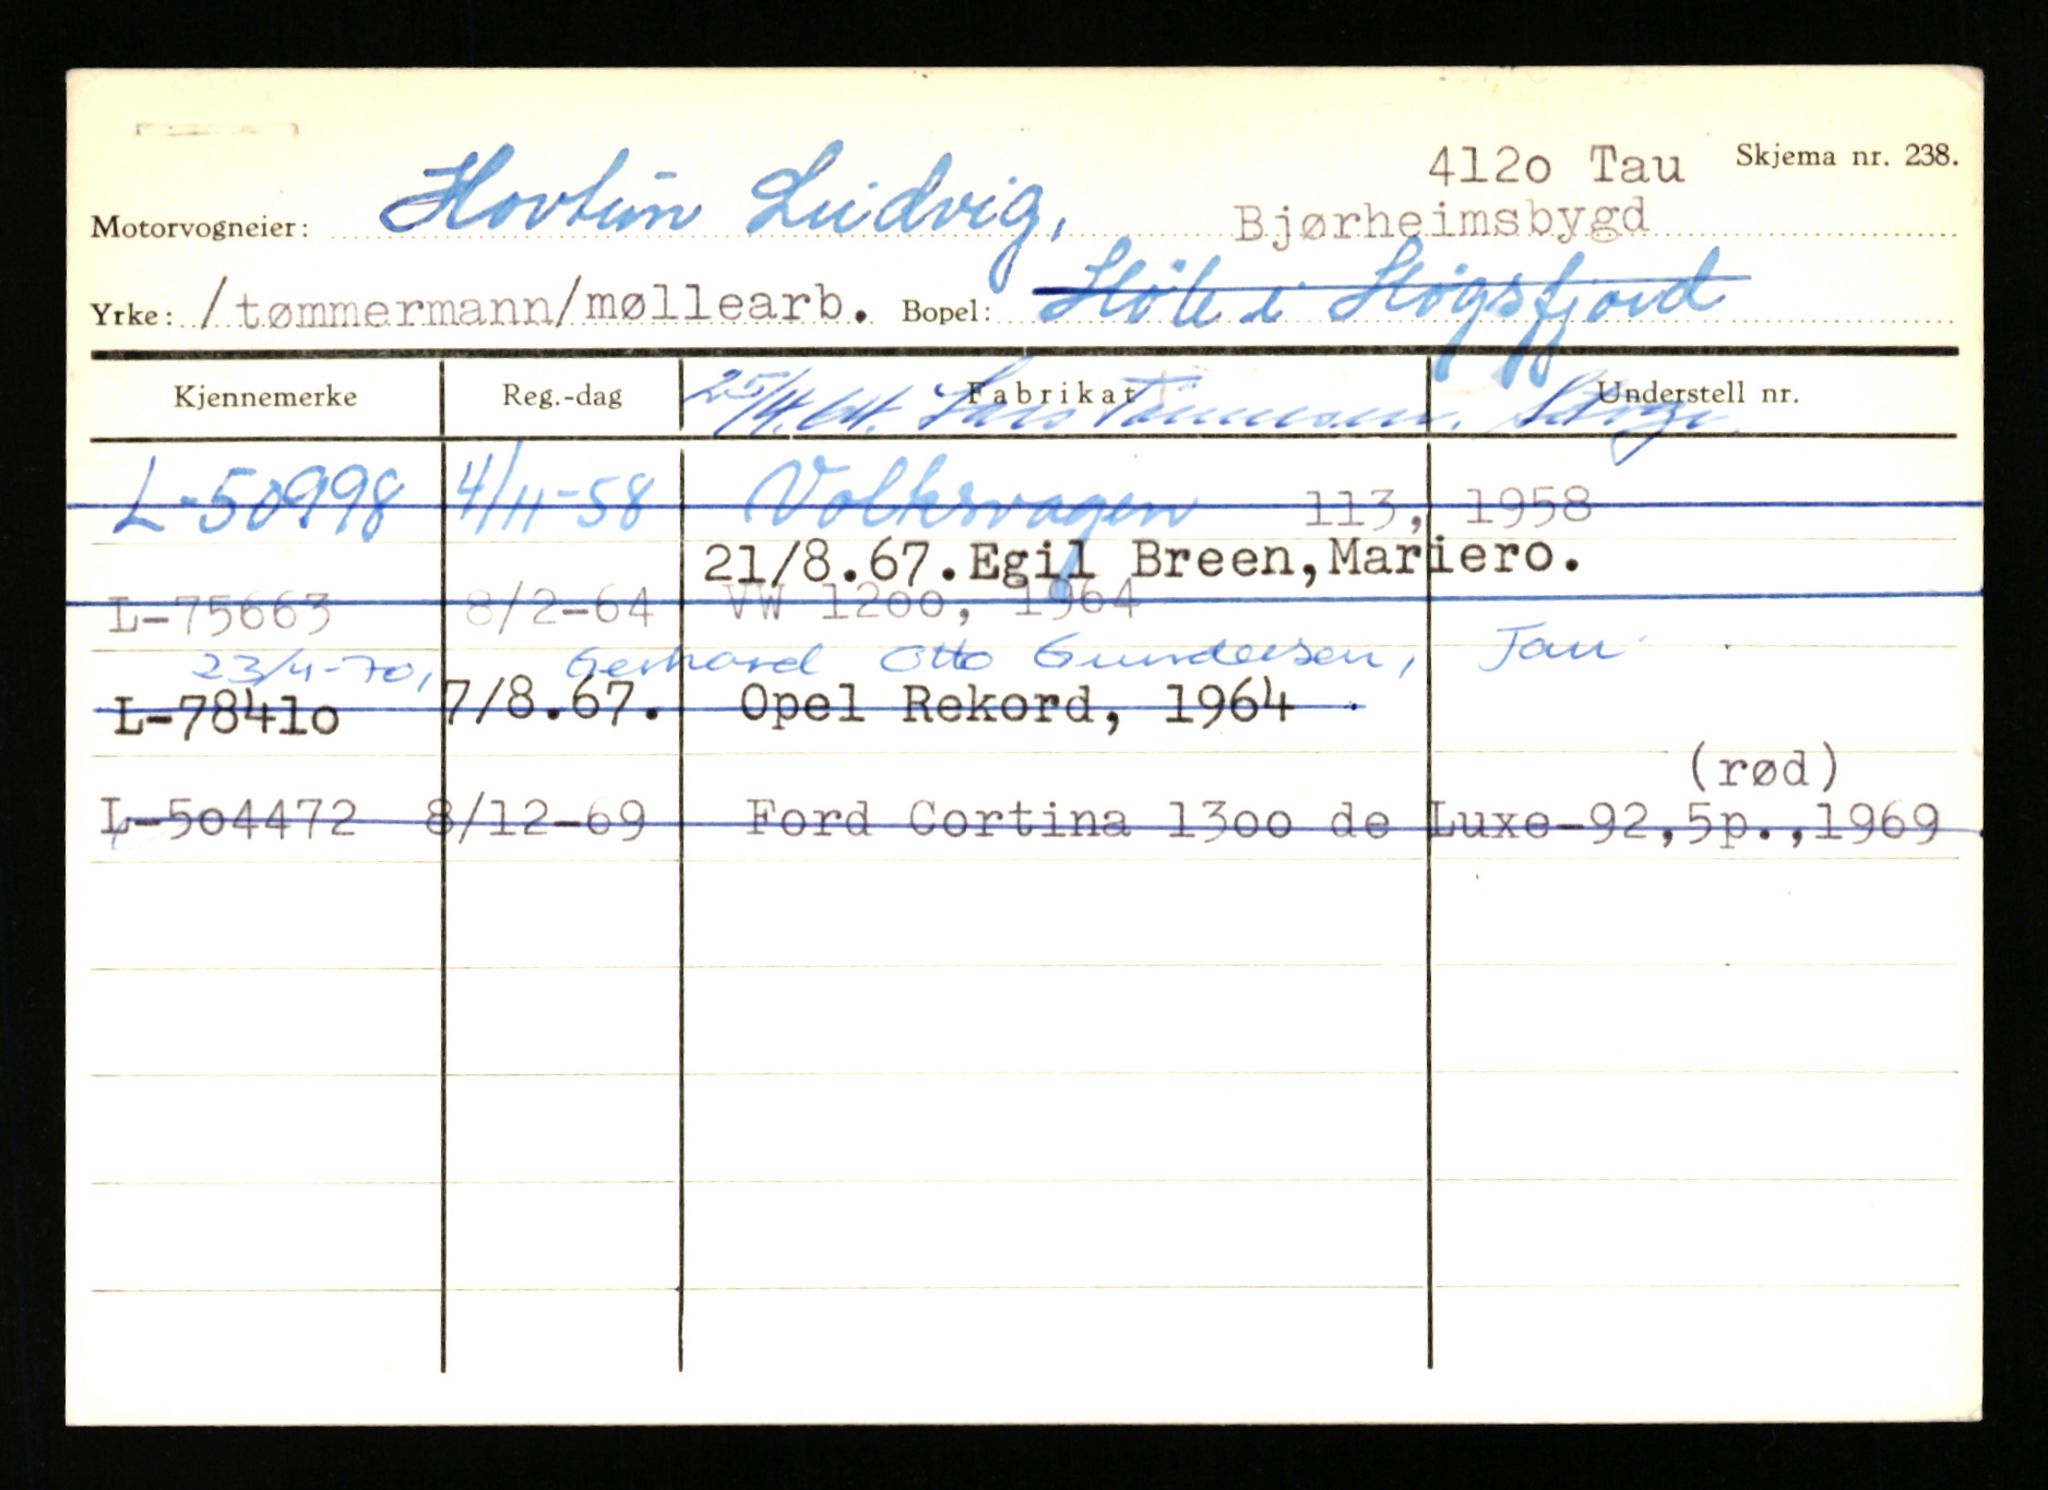 4120 Tau Skjema nr. 238.
Motorvogneier: Hovtun Ludvig, Bjørheimsbygd
Yrke: /tømmermann/møllearb. Bopel: Höle i Högsfjord
Kjennemerke Reg.-dag Fabrikat Understell nr.
25/4.64. Lars
L-50998 4/11-58 Volksvagen 113, 1958
21/8.67.Egil Breen,Mariero.
L-75663 8/2-64 VW 12oo, 1964
23/4-70, Gerhard Otto Gundersen, Tau
L-7841o 7/8.67. Opel Rekord, 1964
(rød)
L-5o4472 8/12-69 Ford Cortina 13oo de Luxe-92,5p.,1969